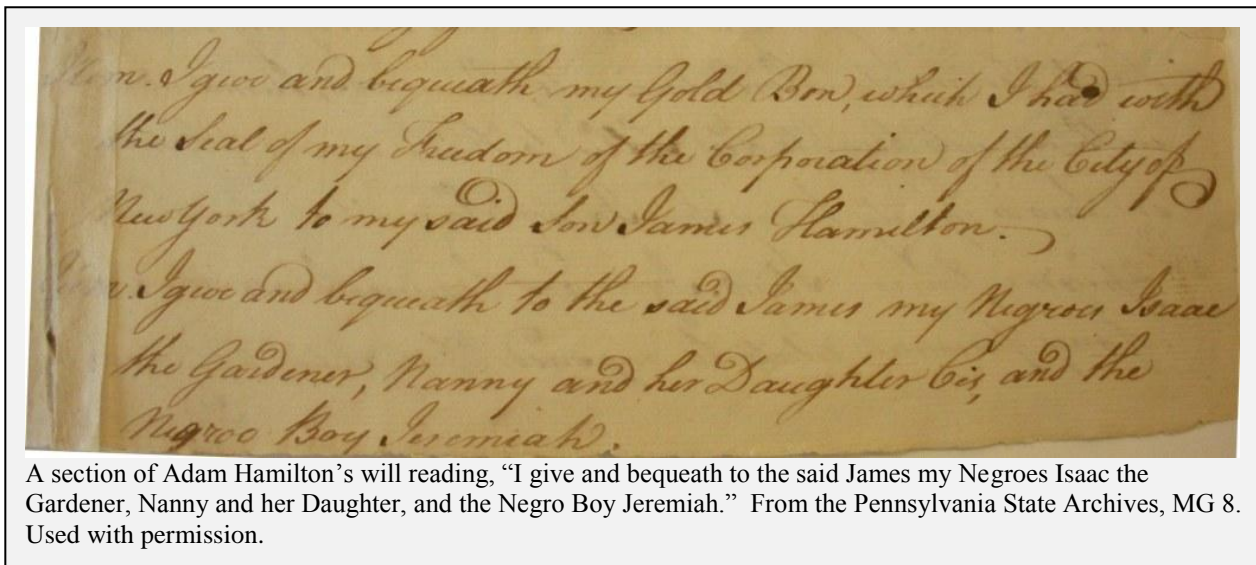 Item. I give and bequeath my Gold Box, which I had with
the Seal of my Freedom of the Corporation of the City of
New York to my said Son James Hamilton.
Item. I give and bequeath to the said James my Negroes Isaac
the Gardener, Nanny and her Daughter Cis, and the
Negroe Boy Jeremiah.
A section of Adam Hamilton’s will reading, “I give and bequeath to the said James my Negroes Isaac the
Gardener, Nanny and her Daughter, and the Negro Boy Jeremiah.” From the Pennsylvania State Archives, MG 8.
Used with permission.